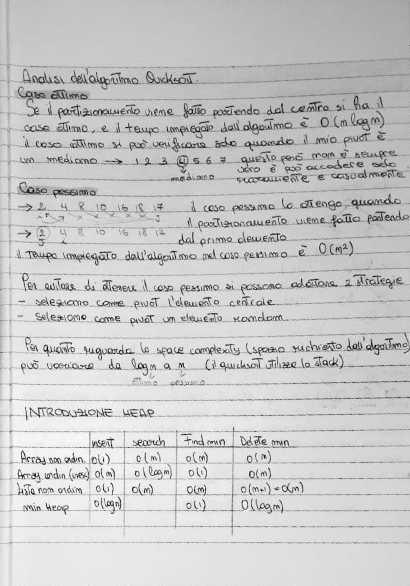 Analisi dell'algoritmo Quicksort.
Caso ottimo
Se il partizionamento viene fatto partendo dal centro si ha il
caso ottimo, e il tempo impiegato dall'algoritmo è O(n logn)
il caso ottimo si può verificare solo quando il mio pivot è
un mediano → 1 2 3 4 5 6 7 questo però non è sempre
mediano vero e può accadere solo
raramente e casualmente
Caso pessimo
→ 2 4 8 10 16 18 17 il caso pessimo lo ottengo quando
il partizionamento viene fatto partendo
→ 2 4 8 10 16 18 17 dal primo elemento
il tempo impiegato dall'algoritmo nel caso pessimo è O(n²)
Per evitare di ottenere il caso pessimo si possono adottare 2 strategie
- seleziono come pivot l'elemento centrale
- seleziono come pivot un elemento random.
Per quanto riguarda lo space complexity (spazio richiesto dall'algoritmo)
può variare da logn a n (il quicksort utilizza lo stack)
ottimo pessimo
INTRODUZIONE HEAP
insert search Find min Delete min
Array non ordin. O(1) O(n) O(n) O(n)
Array ordin (inver) O(n) O(logn) O(1) O(n)
Lista non ordin. O(1) O(n) O(n) O(n+1) = O(n)
min Heap O(logn) O(1) O(logn)